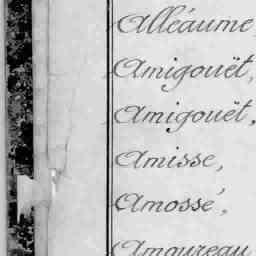 Alléaume,
Amigouët,
Amigouët,
Amisse,
Amossé,
Amoureau